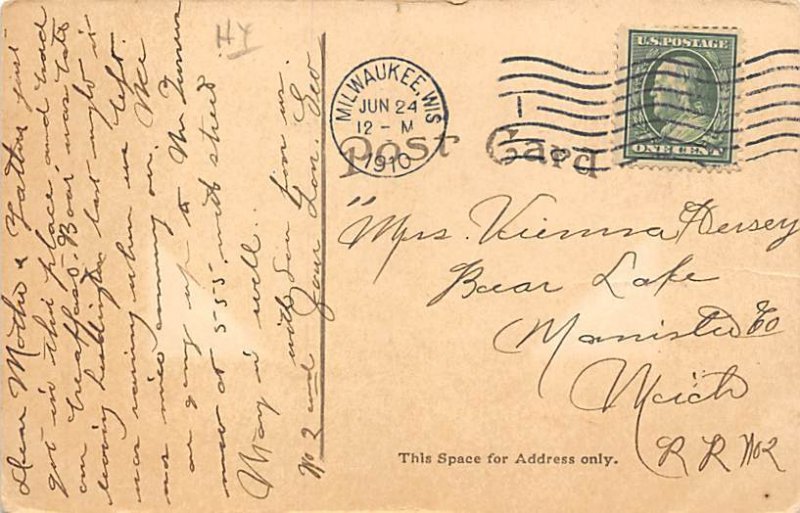 HY
MILWAUKEE, WIS
JUN 24
12 - M
1910
1
U.S. POSTAGE
ONE CENT
Post Card
"Mrs. Vienna Hersey
Bear Lake
Manistee Co
Mich
R R No2
This Space for Address only.
Dear Mother & Father just
got in this place, and had
our breakfast. Boat was late
leaving Ludington last night it
was raining when we left.
was nice coming on. We
are going up to Mr
now at 555. with street
May is well..
with love from us.
No 2 and Your Son. Geo